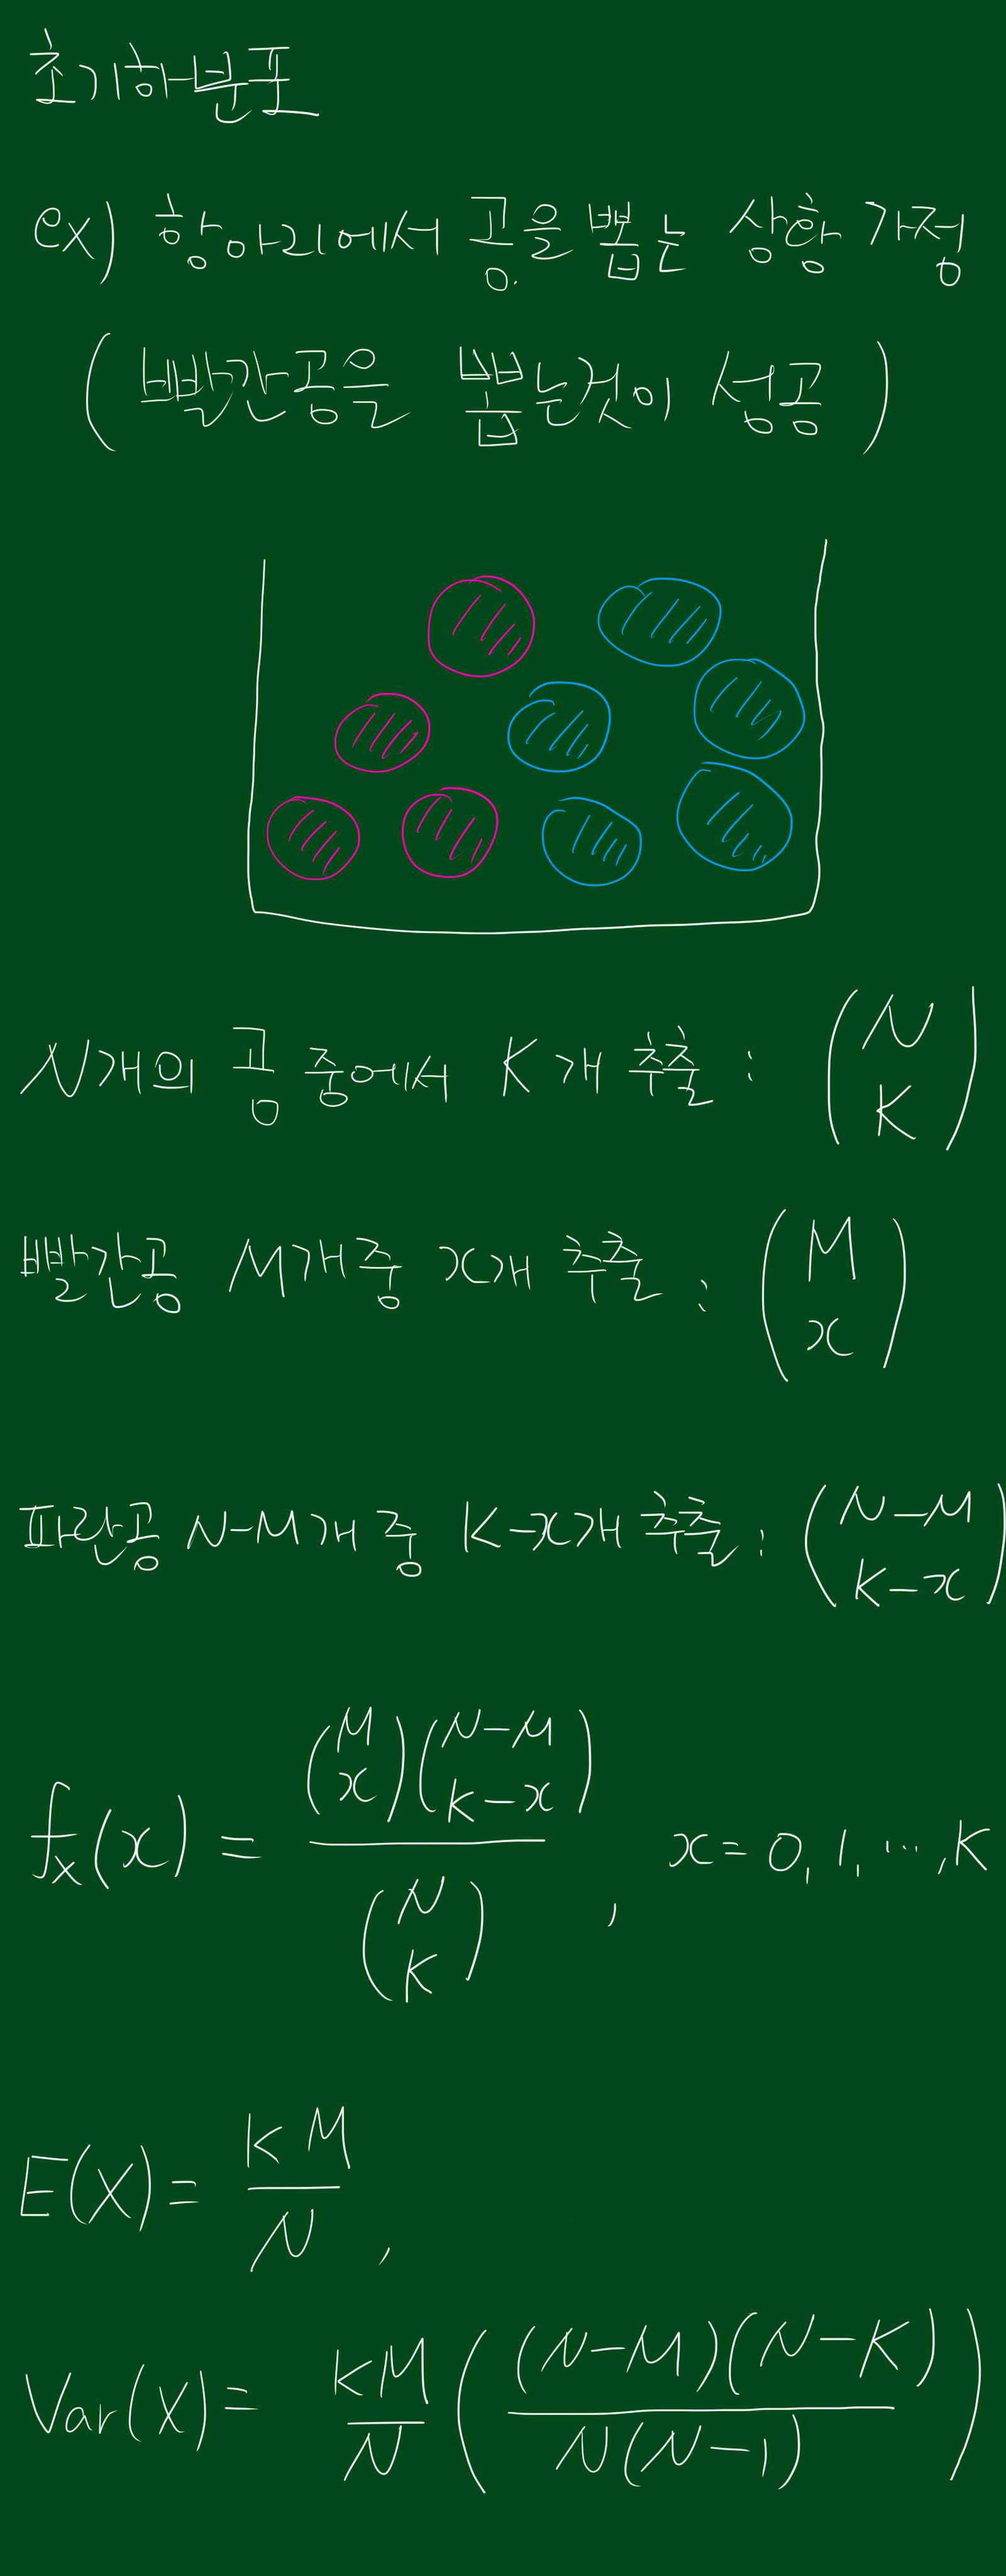 초기하분포
ex) 항아리에서 공을 뽑는 상황 가정
(빨간공을 뽑는것이 성공)
N개의 공 중에서 K개 추출 : \binom{N}{K}
빨간공 M개중 x개 추출 : \binom{M}{x}
파란공 N-M개 중 K-x개 추출 : \binom{N-M}{K-x}
f_X(x) = \frac{\binom{M}{x}\binom{N-M}{K-x}}{\binom{N}{K}} , x = 0, 1, ..., K
E(X) = \frac{KM}{N} ,
Var(X) = \frac{KM}{N} \left( \frac{(N-M)(N-K)}{N(N-1)} \right)